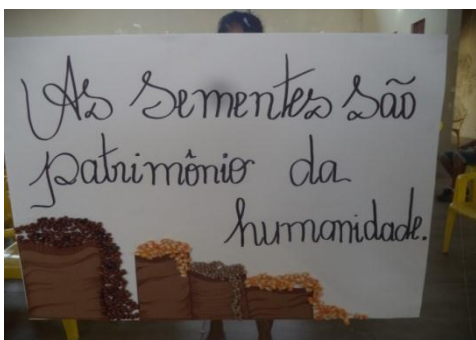 As sementes são
patrimônio da
humanidade.